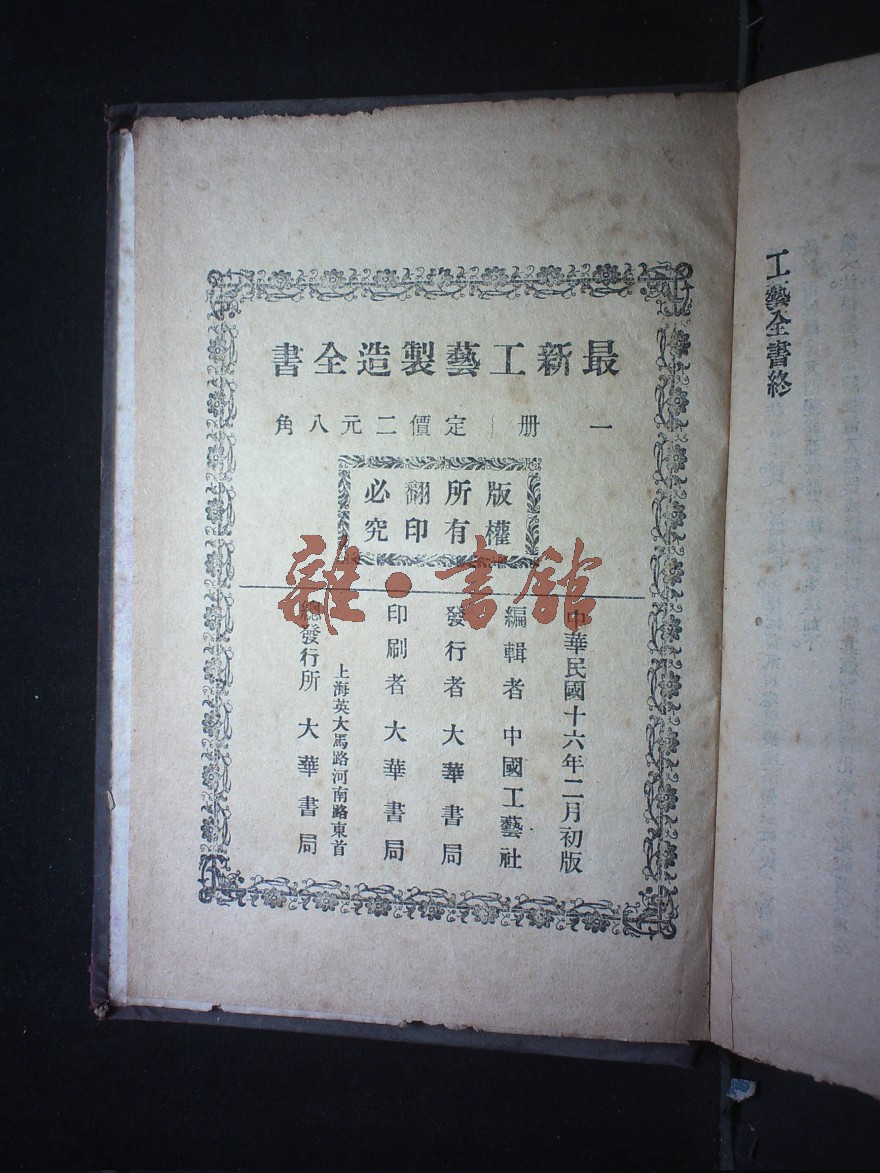 最新工藝製造全書
一册 定價二元八角
版權所有
翻印必究
中華民國十六年二月初版
編輯者 中國工藝社
發行者 大華書局
印刷者 大華書局
上海英大馬路河南路東首
總發行所 大華書局
工藝全書終
雜·書館